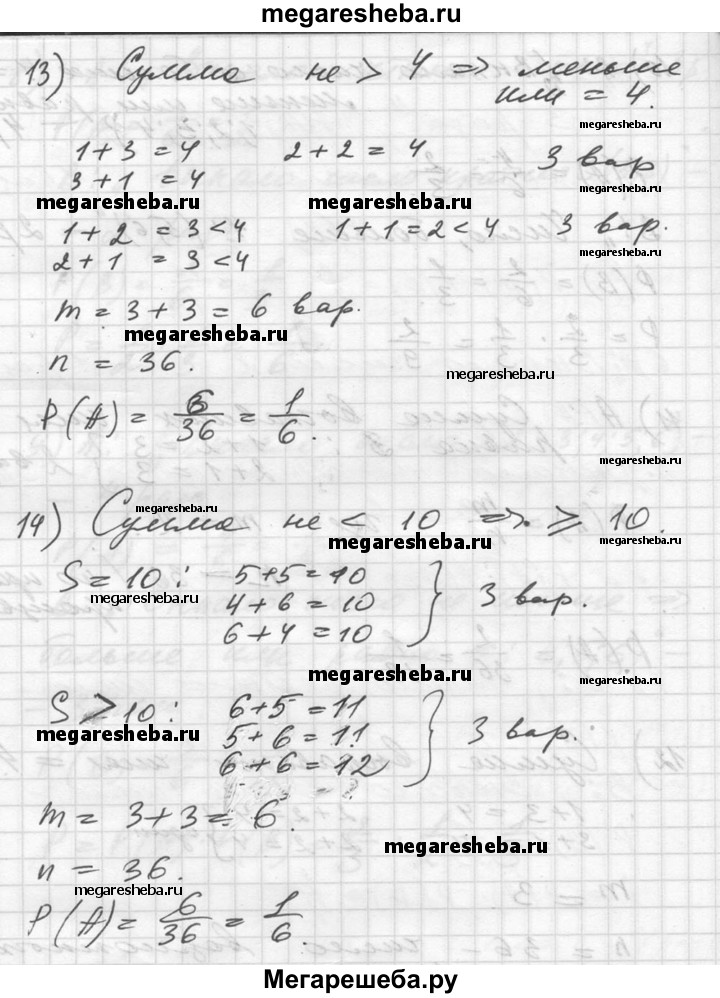 megaresheba.ru
13) Сумма не > 4 => меньше
или = 4.
megaresheba.ru
1 + 3 = 4 2 + 2 = 4 3 вар
3 + 1 = 4
megaresheba.ru megaresheba.ru megaresheba.ru
1 + 2 = 3 < 4 1 + 1 = 2 < 4 3 вар.
2 + 1 = 3 < 4
m = 3 + 3 = 6 вар.
megaresheba.ru
n = 36.
megaresheba.ru
P(A) = 6/36 = 1/6.
megaresheba.ru
megaresheba.ru
14) Сумма не < 10 => ≥ 10.
megaresheba.ru megaresheba.ru
S = 10: 5+5 = 10
4 + 6 = 10 } 3 вар.
megaresheba.ru
6 + 4 = 10
megaresheba.ru megaresheba.ru
S > 10: 6+5 = 11
5 + 6 = 11 } 3 вар.
megaresheba.ru megaresheba.ru
6 + 6 = 12
m = 3 + 3 = 6.
megaresheba.ru
n = 36.
megaresheba.ru
P(A) = 6/36 = 1/6.
megaresheba.ru
Мегарешеба.ру